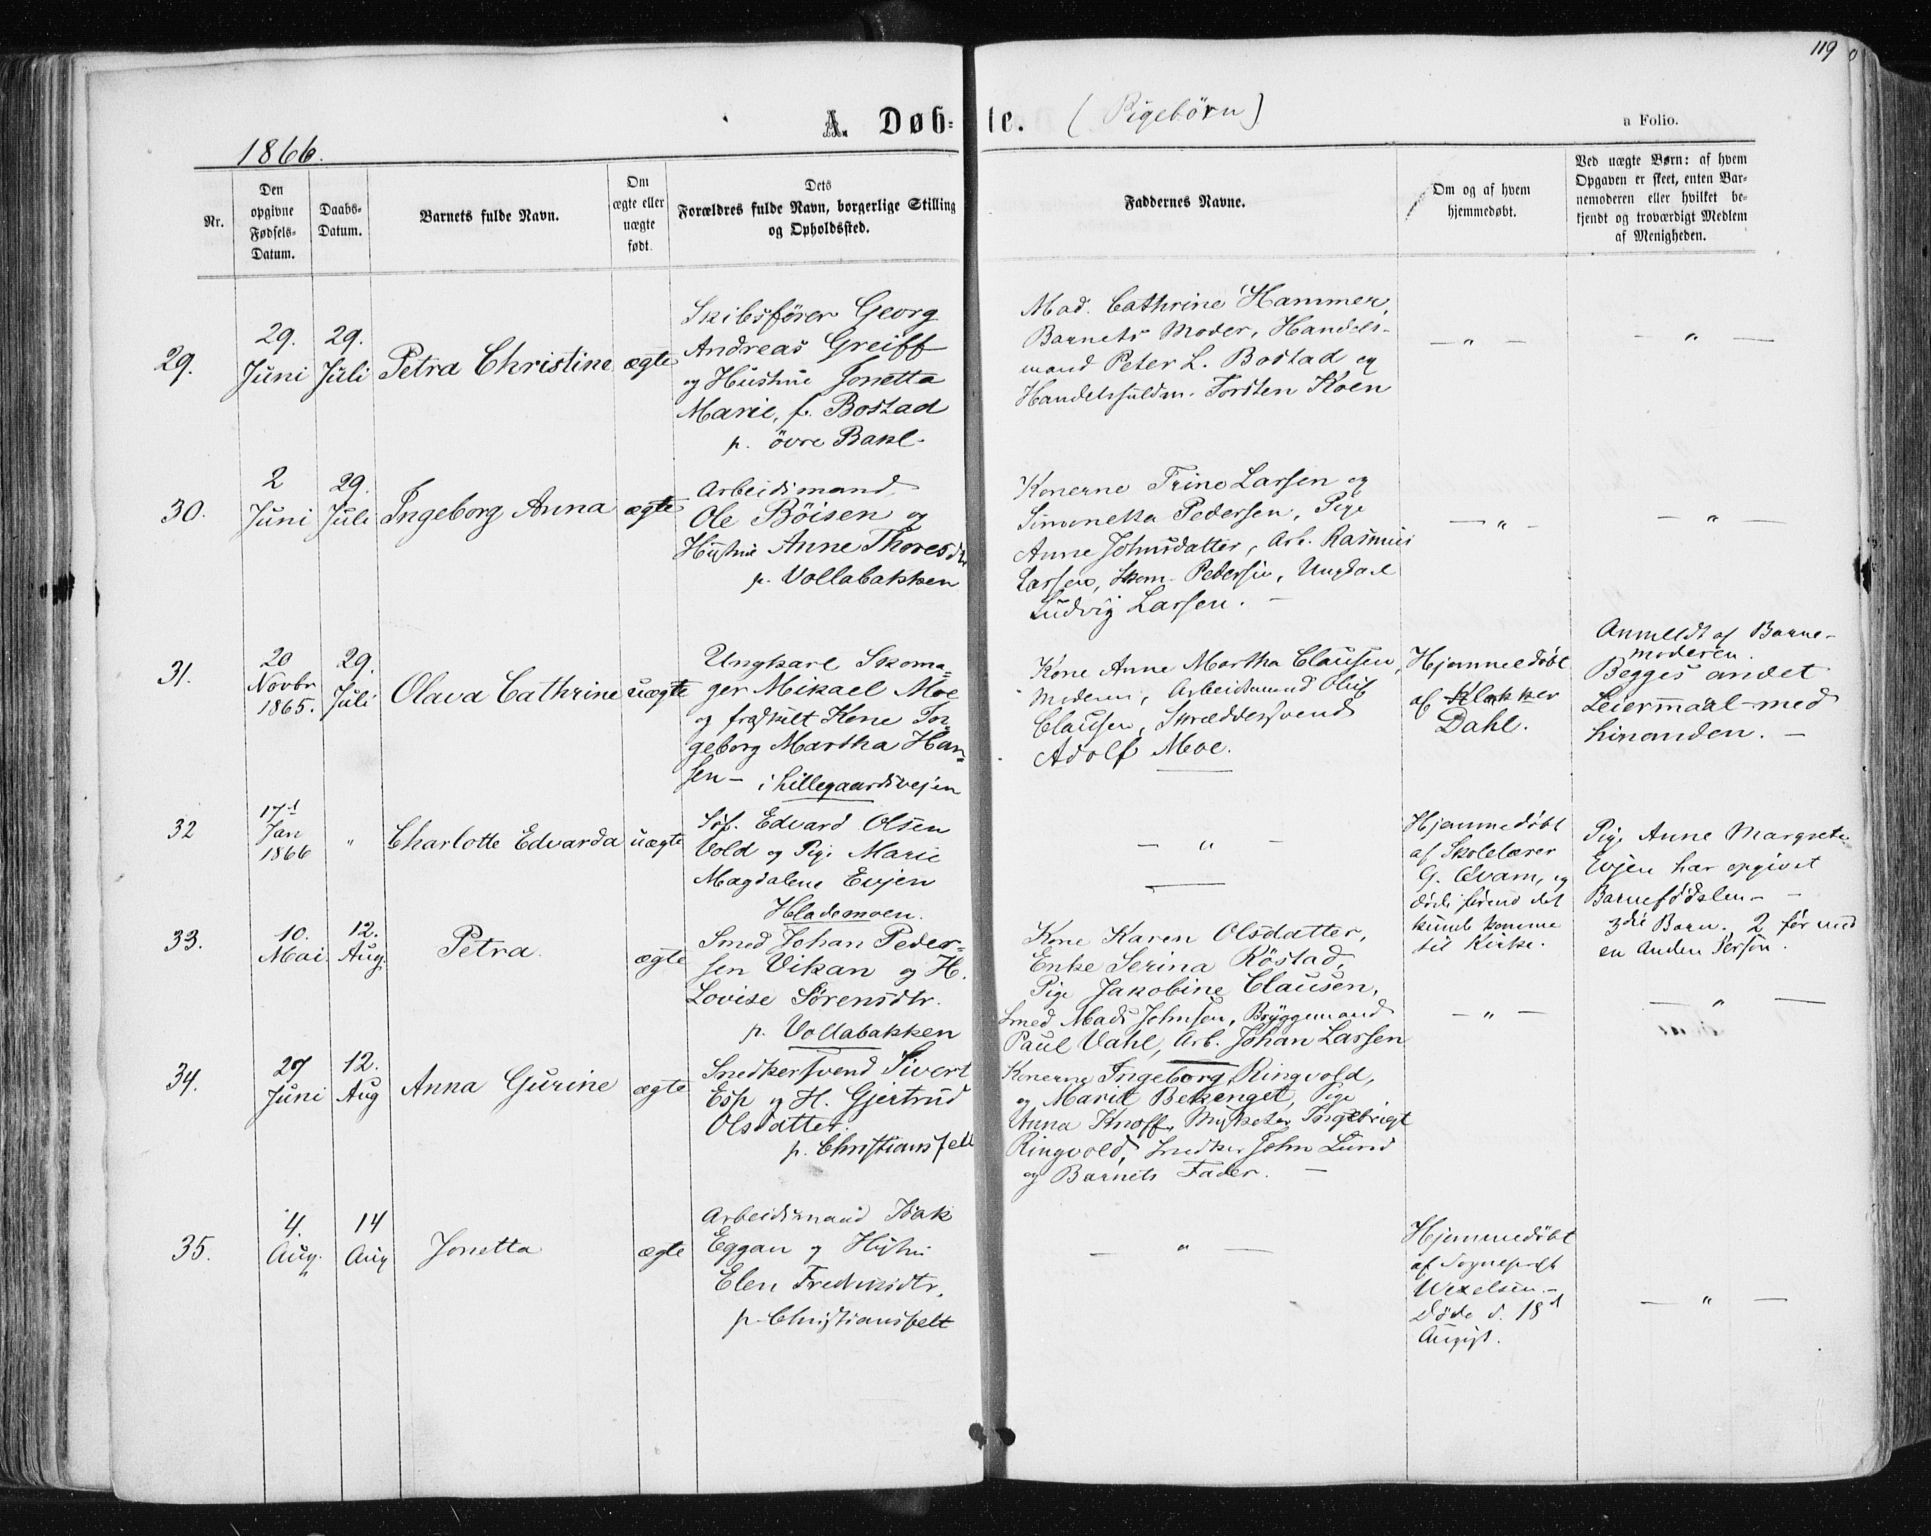 119
A. Døb=te. (Pigebörn)
a Folio.
1866.
Nr.
Den opgivne Fødsels-Datum.
Daabs-Datum.
Barnets fulde Navn.
Om ægte eller uægte født.
Dets Forældres fulde Navn, borgerlige Stilling og Opholdssted.
Faddernes Navne.
Om og af hvem hjemmedøbt.
Ved uægte Børn: af hvem Opgaven er skeet, enten Barnemoderen eller hvilket bekjendt og troværdigt Medlem af Menigheden.
29.
29. Juni
29. Juli
Petra Christine
ægte
Skibsfører Georg
Andreas Greiff
og Hustrue Jonetta
Marie, f. Bostad
p. övre Bakl.
Mad. Cathrine Hammer,
Barnets Moder, Handels-
mand Peter L. Bostad og
Handelsfuldm. Torsten Koen
— " —
— " —
30.
2 Juni
29. Juli
Ingeborg Anna
ægte
Arbeidsmand
Ole Böisen og
Hustrue Anne Thoresdr
p. Vollabakken
Konerne Trine Larsen og
Simonetta Pedersen, Pige
Anne Johnsdatter, Arb. Rasmus
Larsen, Skom. Pedersen, Ungkarl
Ludvig Larsen. —
— " —
— " —
31.
20 Novbr 1865.
29. Juli
Olava Cathrine
uægte
Ungkarl Skoma-
ger Mikael Moe
og fraskilt Kone
geborg Martha Han-
sen — i Lillegaardsvejen
Kone Anne Martha Clausen,
Moderen, Arbeidsmand Oluf
Clausen, Skræddersvend
Adolf Moe.
Hjemmedöbt
af Klokker
Dahl.
Anmeldt af Barne-
moderen.
Begges andet
Leiermaal med
hinanden. —
32
17d Jan 1866
"
Charlotte Edvarda
uægte
Söf. Edvard Olsen
Vold og Pige Marie
Magdalene Evjen
Hlademoen.
— " —
Hjemmedöbt
af Skolelærer
G. Qvam, og
döde förend det
kunde komme
til Kirke.
Pige Anne Margrete
Evjen har opgivet
Barnefödslen —
3die Barn. 2 før med
en Anden Person.
33.
10. Mai
12. Aug
Petra
ægte
Smed Johan Peder-
sen Vikan og H.
Lovise Sørensdtr.
p. Vollabakken
Kone Karen Olsdatter,
Enke Serina Röstad,
Pige Jakobine Clausen,
Smed Mads Johnsen, Bryggemand
Paul Vahl, Arb. Johan Larsen
— " —
— " —
34.
27 Juni
12. Aug
Anna Gurine
ægte
Snedkersvend Sivert
Esp og H. Gjertrud
Olsdatter.
p. Christiansfelt
Konerne Ingeborg Ringvold,
og Marit Bekenget, Pige
Anna Knoff, Ingebrigt
Ringvold, Snedker John Lund
og Barnets Fader. —
35.
4. Aug.
14 Aug
Jonetta
ægte
Arbeidsmand Isak
Eggan og Hustru
Elen Fredriksdtr.
p. Christiansfelt
— " —
Hjemmedöbt
af Sognepræst
Wexelsen. —
Döde d. 18d
August.
— " —